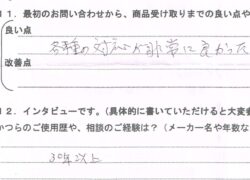 11. 最初のお問い合わせから、商品受け取りまでの良い点や
良い点
各種の対応が非常に良かった
改善点
12. インタビューです。(具体的に書いていただけると大変参
かつらのご使用歴や、相談のご経験は？（メーカー名や年数な
30年以上